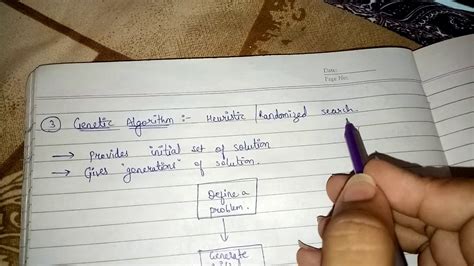 Date:
Page No:
③ Genetic Algorithm :- Heuristic / Randomized search.
→ Provides initial set of solution
→ Gives "generations" of solution.
Define a
problem.
Generate